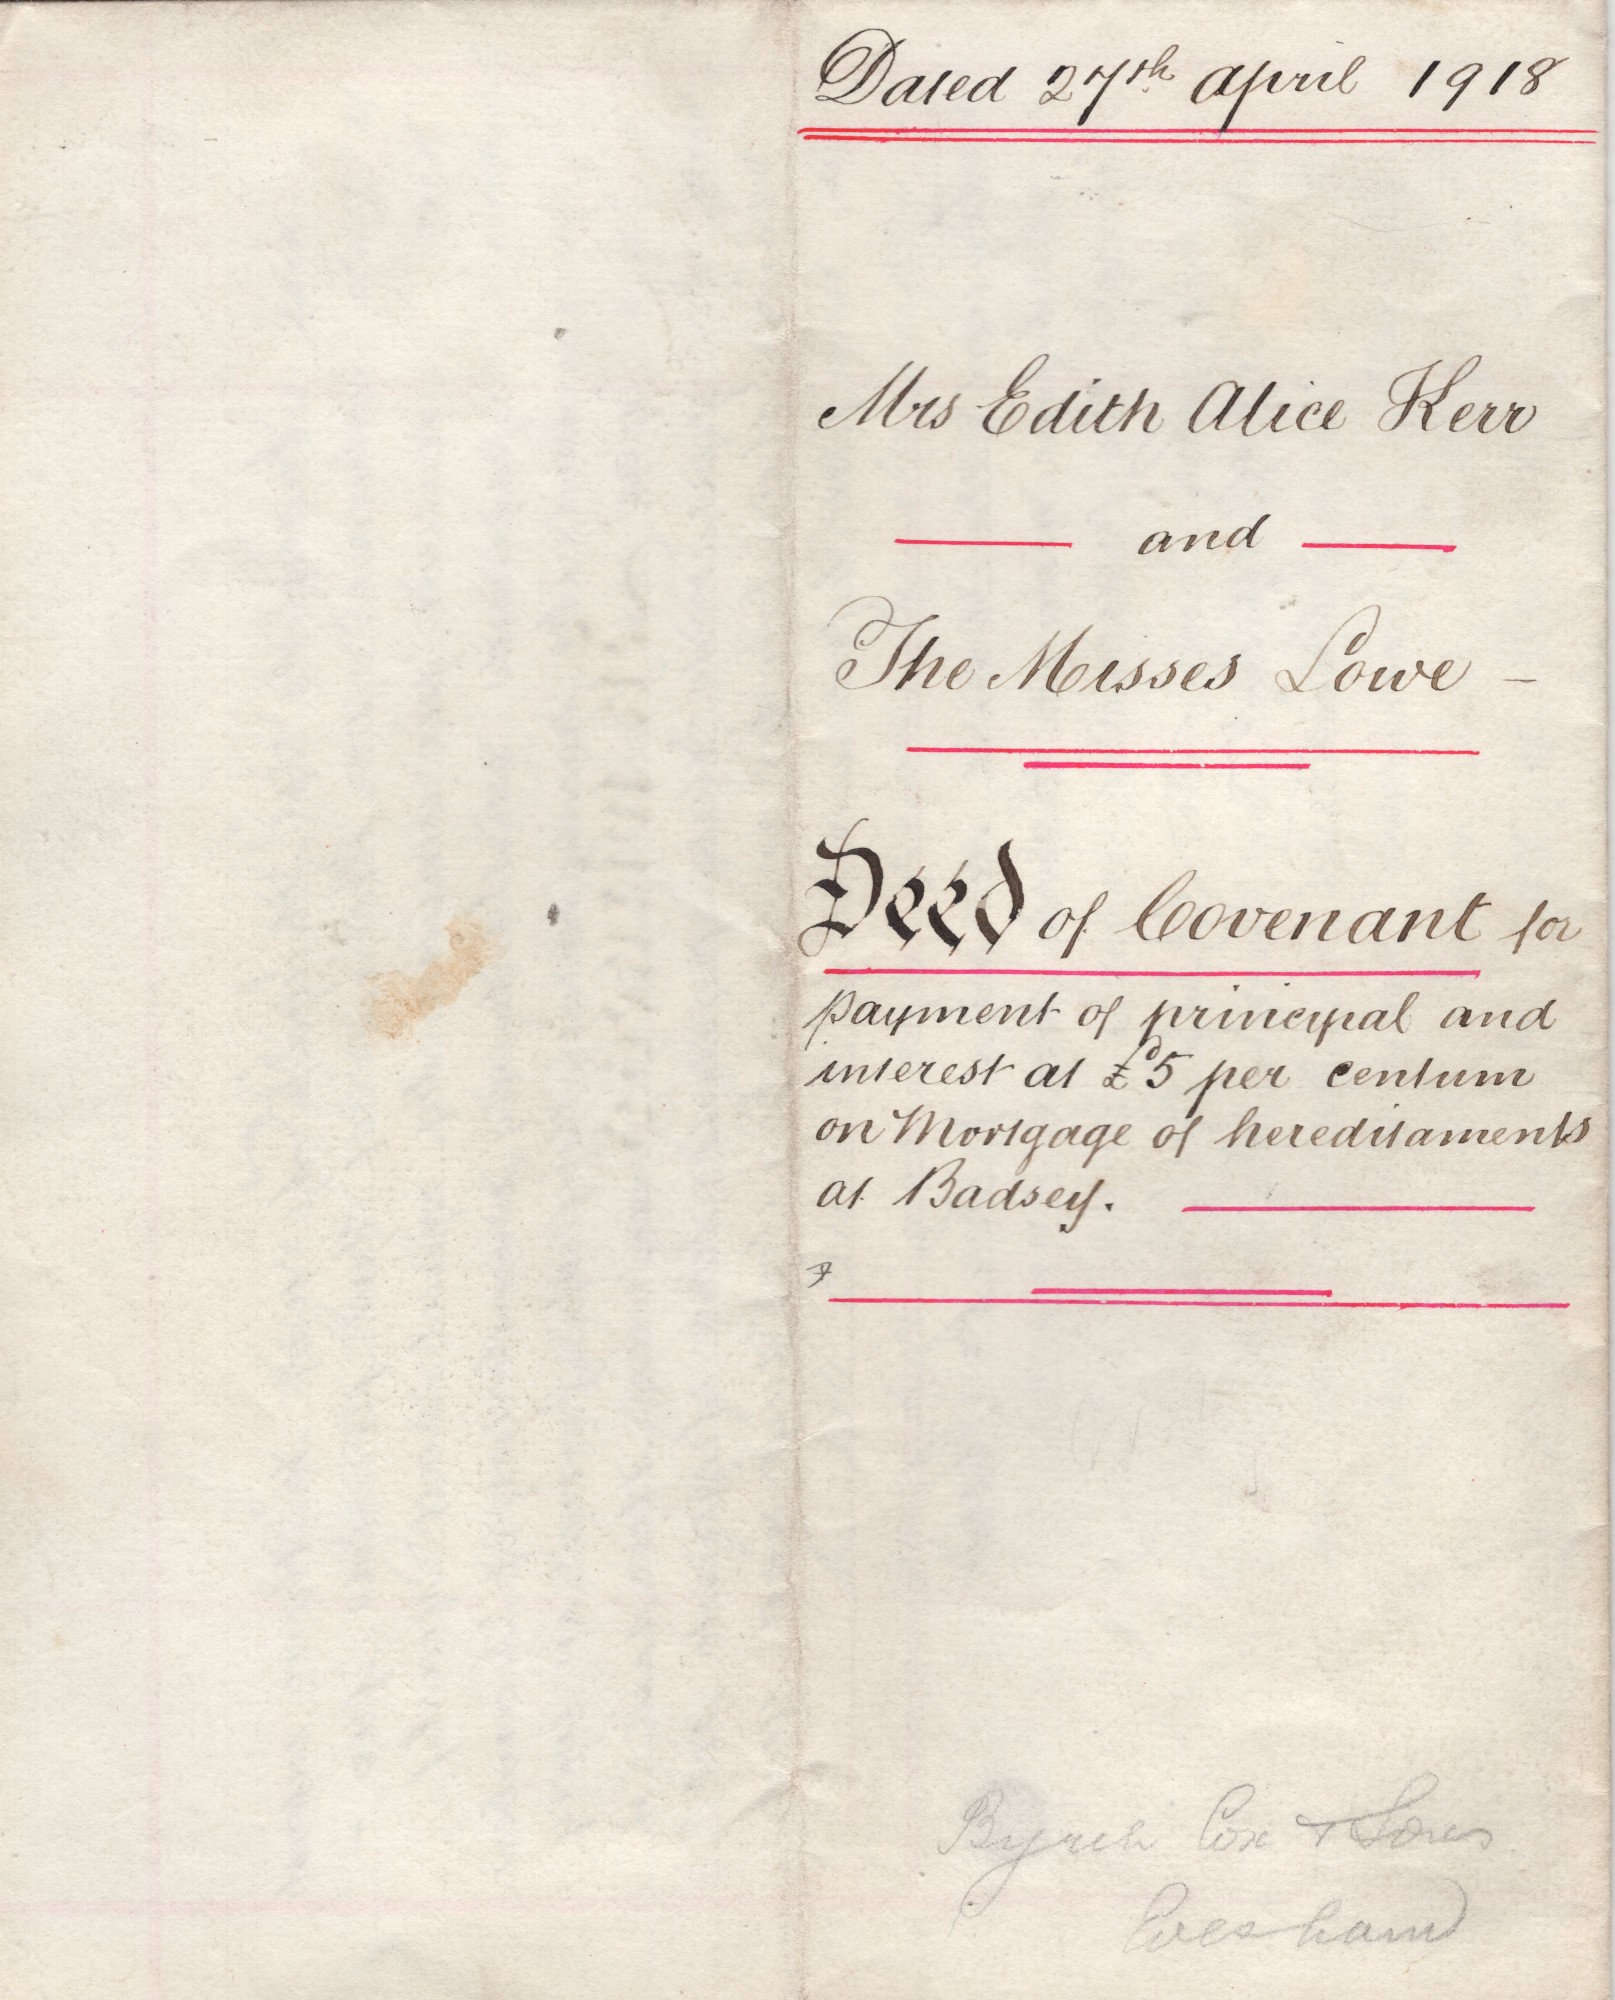 Dated 27th April 1918
Mrs Edith Alice Kerr
and
The Misses Lowe -
Deed of Covenant for
payment of principal and
interest at £5 per centum
on Mortgage of hereditaments
at Badsey.
Byrch Cox & Sons
Evesham